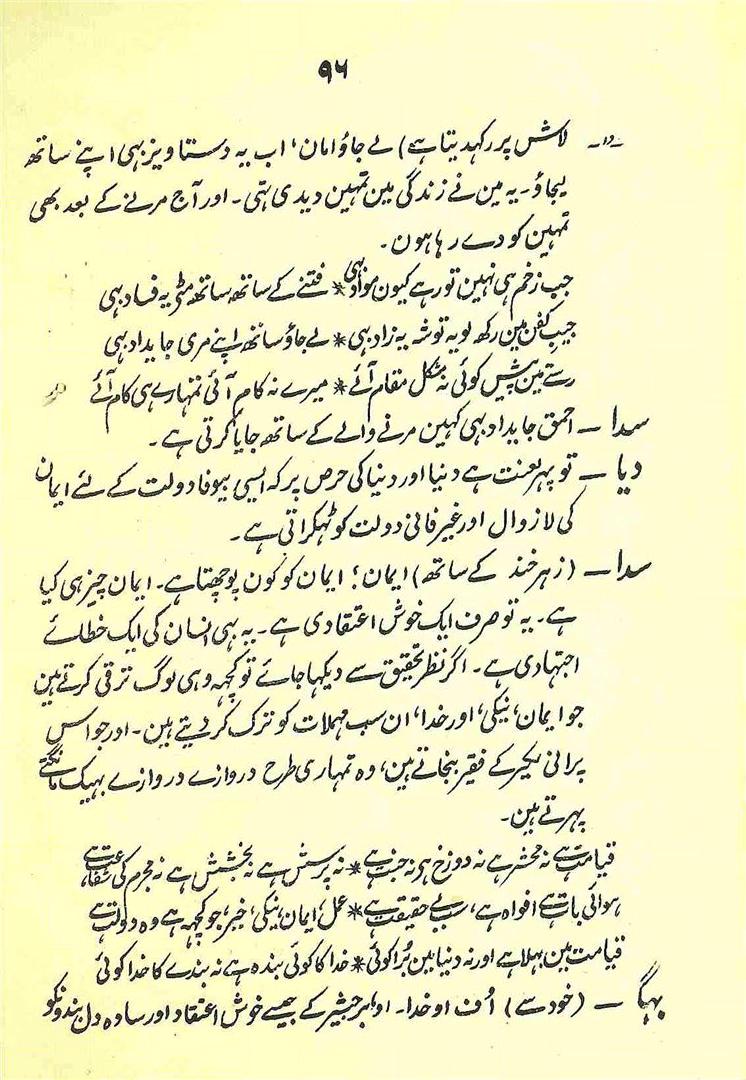 ۹۶
۔دا۔ لاش پر رکہدیتا ہے) لے جاؤ امان' اب یہ دستاویز بہی اپنے ساتھ
لیجاؤ۔ یہ مین نے زندگی مین تمہین دیدی تہی۔ اور آج مرنے کے بعد بھی
تمہین کو دے رہا ہون۔
جب زخم ہی نہین تو رہے کیون مواد بہی * فتنے کے ساتھ ساتھ مٹے یہ فساد بہی
جیب کفن مین رکھ لو یہ توشہ یہ زاد بہی * لے جاؤ ساتھ اپنے مری جایداد بہی
رستے مین پیش کوئی نہ مشکل مقام آئے * میرے نہ کام آئی تمہارے ہی کام آئے
سدا — احمق جایداد بہی کہین مرنے والے کے ساتھ جایا کرتی ہے۔
دیا — تو پہر لعنت ہے دنیا اور دنیا کی حرص پر کہ ایسی بیوفا دولت کے لئے ایمان
کی لازوال اور غیر فانی دولت کو ٹہکراتی ہے۔
سدا — (زہر خند کے ساتھ) ایمان! ایمان کو کون پوچھتا ہے۔ ایمان چیز ہی کیا
ہے۔ یہ تو صرف ایک خوش اعتقادی ہے۔ یہ بہی انسان کی ایک خطائے
اجتہادی ہے۔ اگر نظر تحقیق سے دیکہا جائے تو کچہہ وہی لوگ ترقی کرتے ہین
جو ایمان' نیکی' اور خدا' ان سب مہملات کو ترک کر دیتے ہین۔ اور جو اس
پرانی لکیر کے فقیر بنجاتے ہین' وہ تمہاری طرح دروازے دروازے بہیک مانگتے
پہرتے ہین۔
قیامت ہے نہ محشر ہے نہ دوزخ ہو نہ جنت ہے * نہ پرسش ہے نہ بخشش ہے نہ مجرم کی شفاعت ہے
ہوائی بات ہے افواہ ہے، سب بے حقیقت ہے * عمل' ایمان' نیکی' خیر' جو کچہہ ہے وہ دولت ہے
قیامت مین بہلا ہے اور نہ دنیا مین برا کوئی * خدا کا کوئی بندہ ہے نہ بندے کا خدا کوئی
بہگ — (خود سے) اُف او خدا۔ او ایسر جشیر کے جیسے خوش اعتقاد اور سادہ دل بندونکو